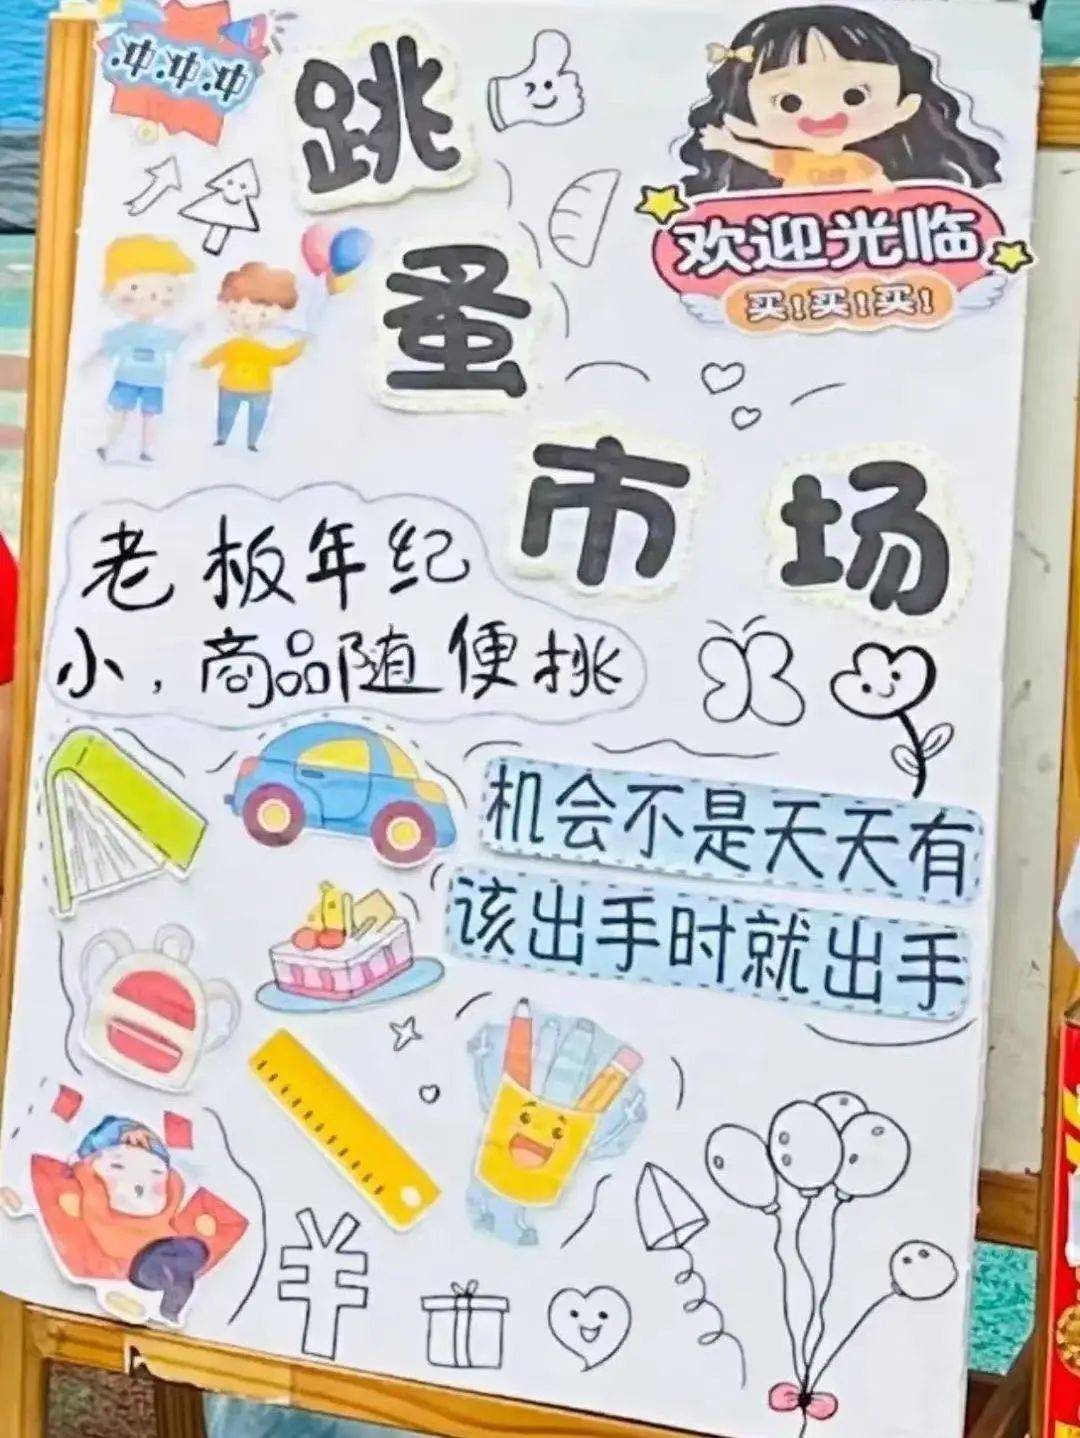 冲.冲.冲
跳蚤市场
欢迎光临
买!买!买!
老板年纪
小,商品随便挑
机会不是天天有
该出手时就出手